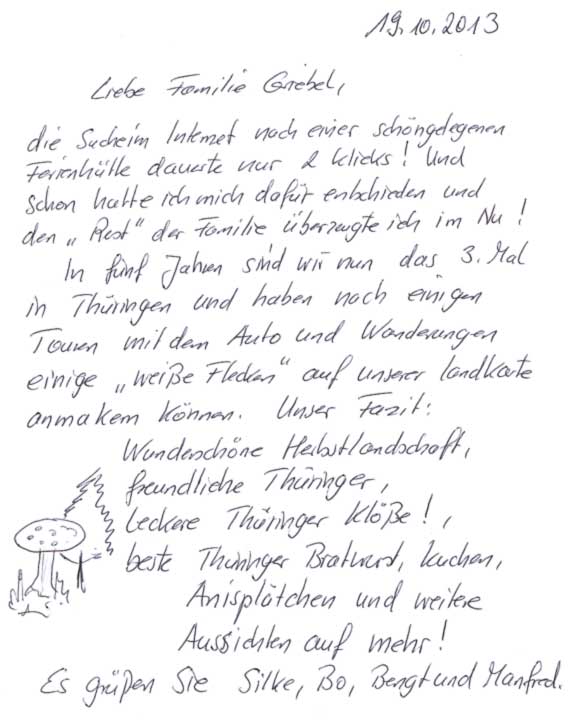 19.10.2013
Liebe Familie Griebel,
die Suche im Internet nach einer schöngelegenen
Ferienhütte dauerte nur 2 Klicks! Und
schon hatte ich mich dafür entschieden und
den „Rest" der Familie überzeugte ich im Nu!
In fünf Jahren sind wir nun das 3. Mal
in Thüringen und haben nach einigen
Touren mit dem Auto und Wanderungen
einige „weiße Flecken" auf unserer Landkarte
anmalem können. Unser Fazit:
Wunderschöne Herbstlandschaft,
freundliche Thüringer,
leckere Thüringer Klöße!,
beste Thüringer Bratwurst, Kuchen,
Anisplätchen und weitere
Aussichten auf mehr!
Es grüßen Sie Silke, Bo, Bengt und Manfred.